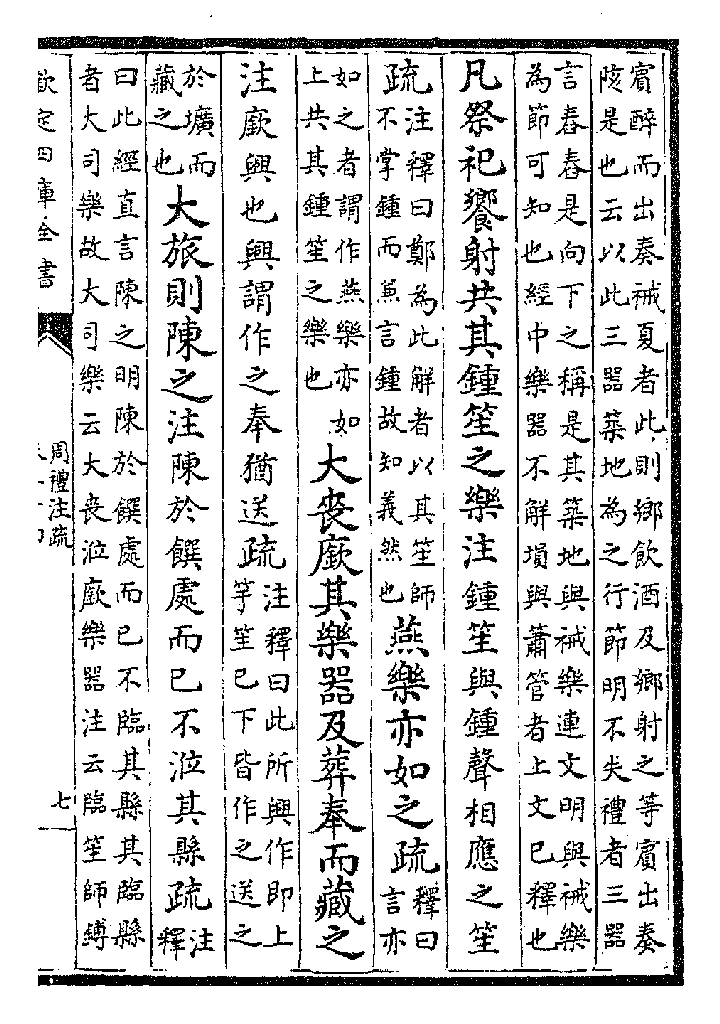 賔醉而出奏祴夏者此則鄉飲酒及鄉射之等賔出奏
陔是也云以此三器築地為之行節明不失禮者三器
言舂舂是向下之稱是其築地與祴樂連文明與祴樂
為節可知也經中樂器不解塤與簫管者上文已釋也
凡祭祀饗射共其鍾笙之樂注鍾笙與鍾聲相應之笙
疏注釋曰鄭為此解者以其笙師
不掌鍾而兼言鍾故知義然也燕樂亦如之疏釋曰
言亦
如之者謂作燕樂亦如
上共其鍾笙之樂也大喪廞其樂器及葬奉而藏之
注廞興也興謂作之奉猶送疏注釋曰此所興作即上
竽笙已下皆作之送之
於壙而
藏之也大旅則陳之注陳於饌處而已不涖其縣疏注
釋
曰此經直言陳之明陳於饌處而已不臨其縣其臨縣
者大司樂故大司樂云大喪涖廞樂器注云臨笙師鎛
欽定四庫全書
周禮注疏
七